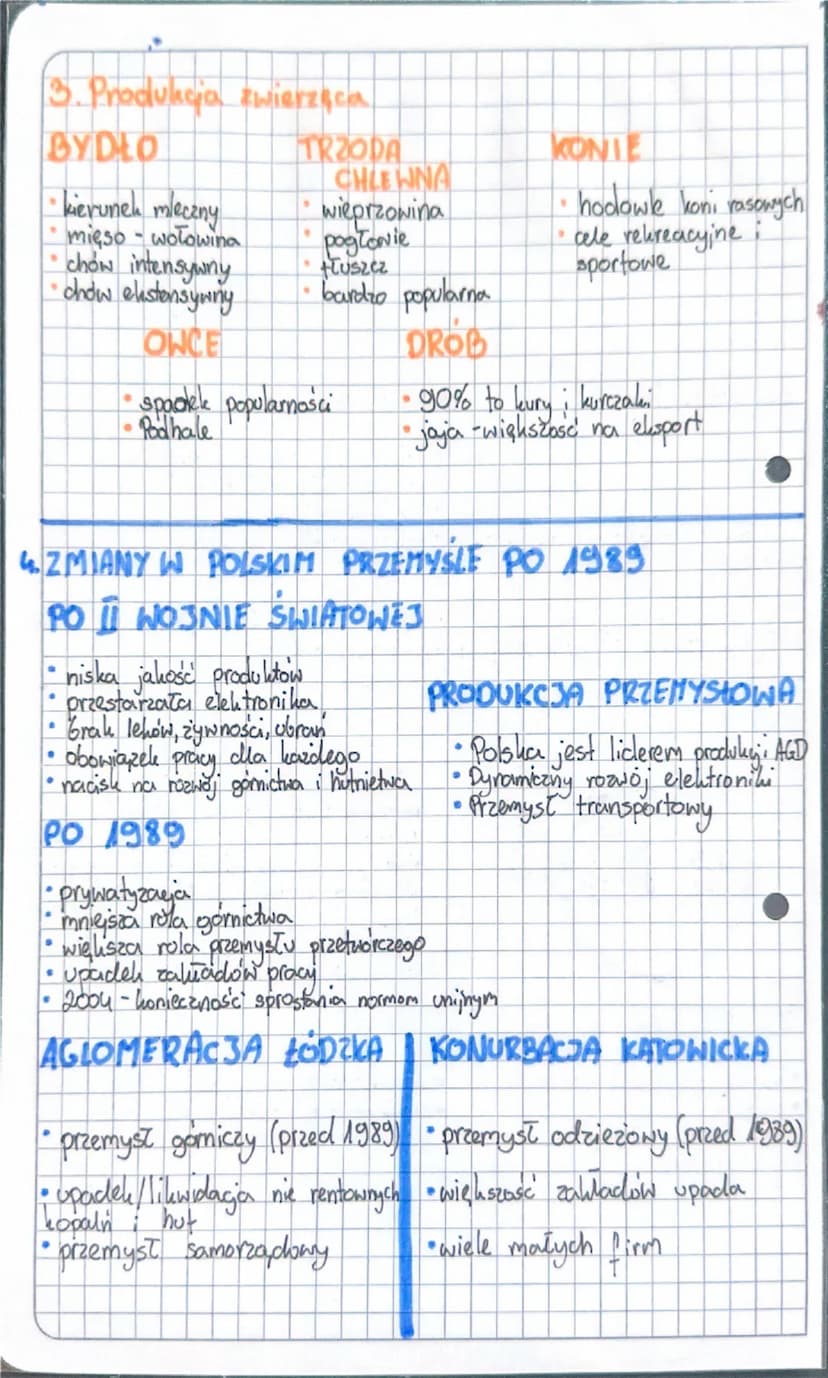 3. Produkcja zwierzęca
BYDŁO
• kierunek mleczny
• mięso - wołowina
• chów intensywny
• chów ekstensywny
TRZODA
CHLEWNA
• wieprzowina
• pogłowie
• tłuszcz
• bardzo popularna
KONIE
• hodowle koni rasowych
• cele rekreacyjne i
sportowe
OWCE
• spadek popularności
• Podhale
DRÓB
• 90% to kury i kurczaki
• jaja - większość na eksport
4. ZMIANY W POLSKIM PRZEMYŚLE PO 1989
PO II WOJNIE ŚWIATOWEJ
• niska jakość produktów
• przestarzała elektronika
• brak leków, żywności, ubrań
• obowiązek pracy dla każdego
• nacisk na rozwój górnictwa i hutnictwa
PRODUKCJA PRZEMYSŁOWA
• Polska jest liderem produkcji AGD
• Dynamiczny rozwój elektroniki
• Przemysł transportowy
PO 1989
• prywatyzacja
• mniejsza rola górnictwa
• większa rola przemysłu przetwórczego
• upadek zakładów pracy
• 2004 - konieczność sprostania normom unijnym
AGLOMERACJA ŁÓDZKA
• przemysł górniczy (przed 1989)
• upadek/likwidacja nie rentownych
kopalń i hut
• przemysł samorządowy
KONURBACJA KATOWICKA
• przemysł odzieżowy (przed 1989)
• większość zakładów upada
• wiele małych firm